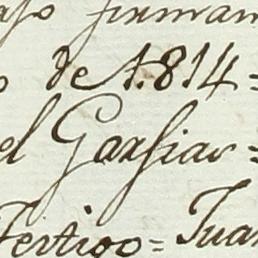 firman
de 1.814=
el Garsias=
Testigo= Juan